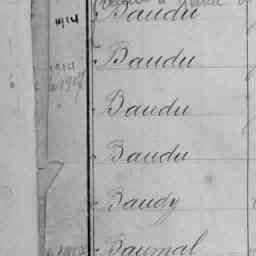 1914 Baudu
1914 Baudu
1917
Baudu
Baudu
Baudy
Baumal